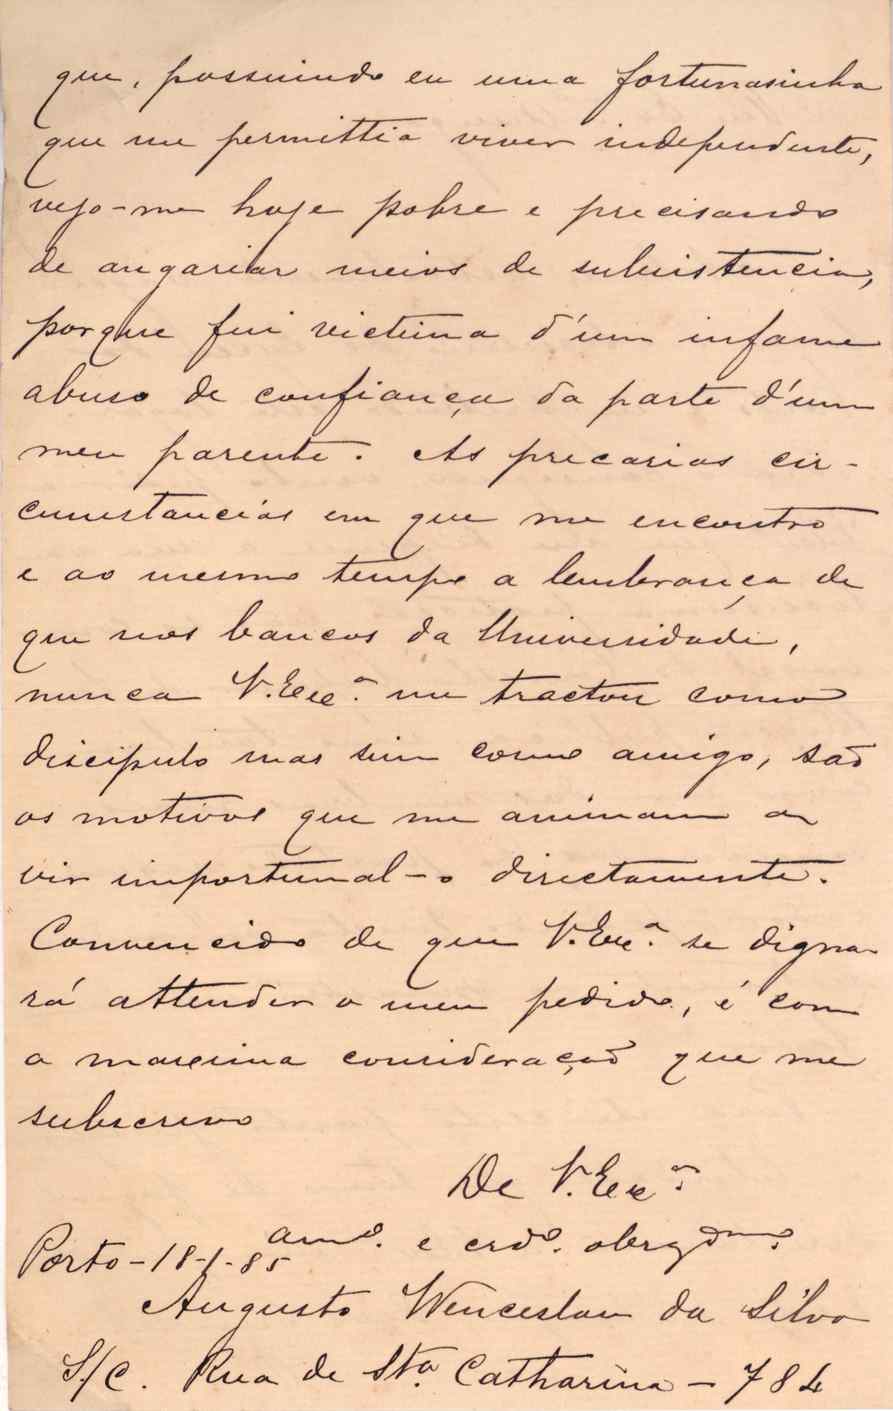 que, possuindo eu uma fortunasinha
que me permittia viver independente,
vejo-me hoje pobre e precisando
de angariar meios de subsistencia,
porque fui victima d'um infame
abuso de confiança da parte d'um
meu parente. As precarias cir-
cumstancias em que me encontro
e ao mesmo tempo a lembrança de
que nos bancos da Universidade,
nunca V. Exc.ª me tractou como
discipulo mas sim como amigo, são
os motivos que me animam a
vir importunal-o directamente.
Convencido de que V. Exc.ª se digna-
rá attender o meu pedido, é com
a maxima consideração que me
subscrevo
De V. Exc.ª
am.º e crd.º obrgdm.º
Porto-18-1-85
Augusto Wenceslau da Silva
S/C. Rua de Sta. Catharina - 784